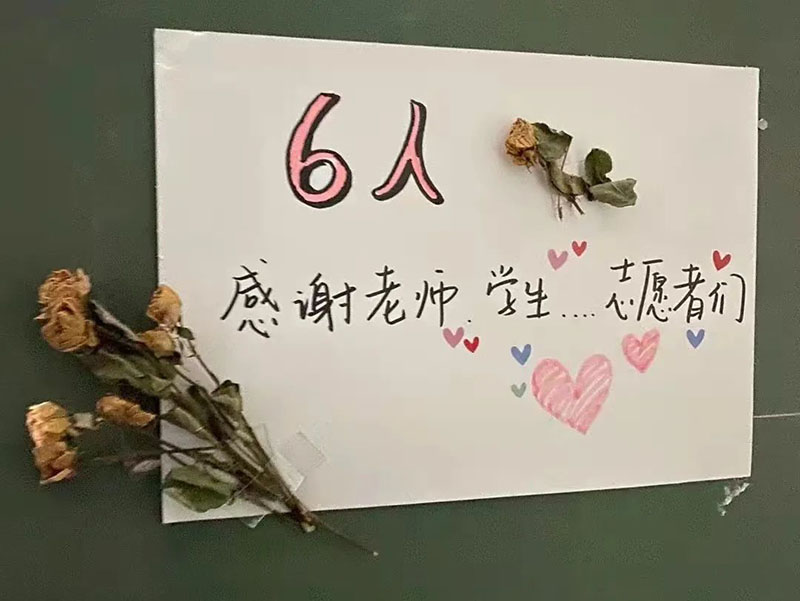 6人
感谢老师.学生....志愿者们